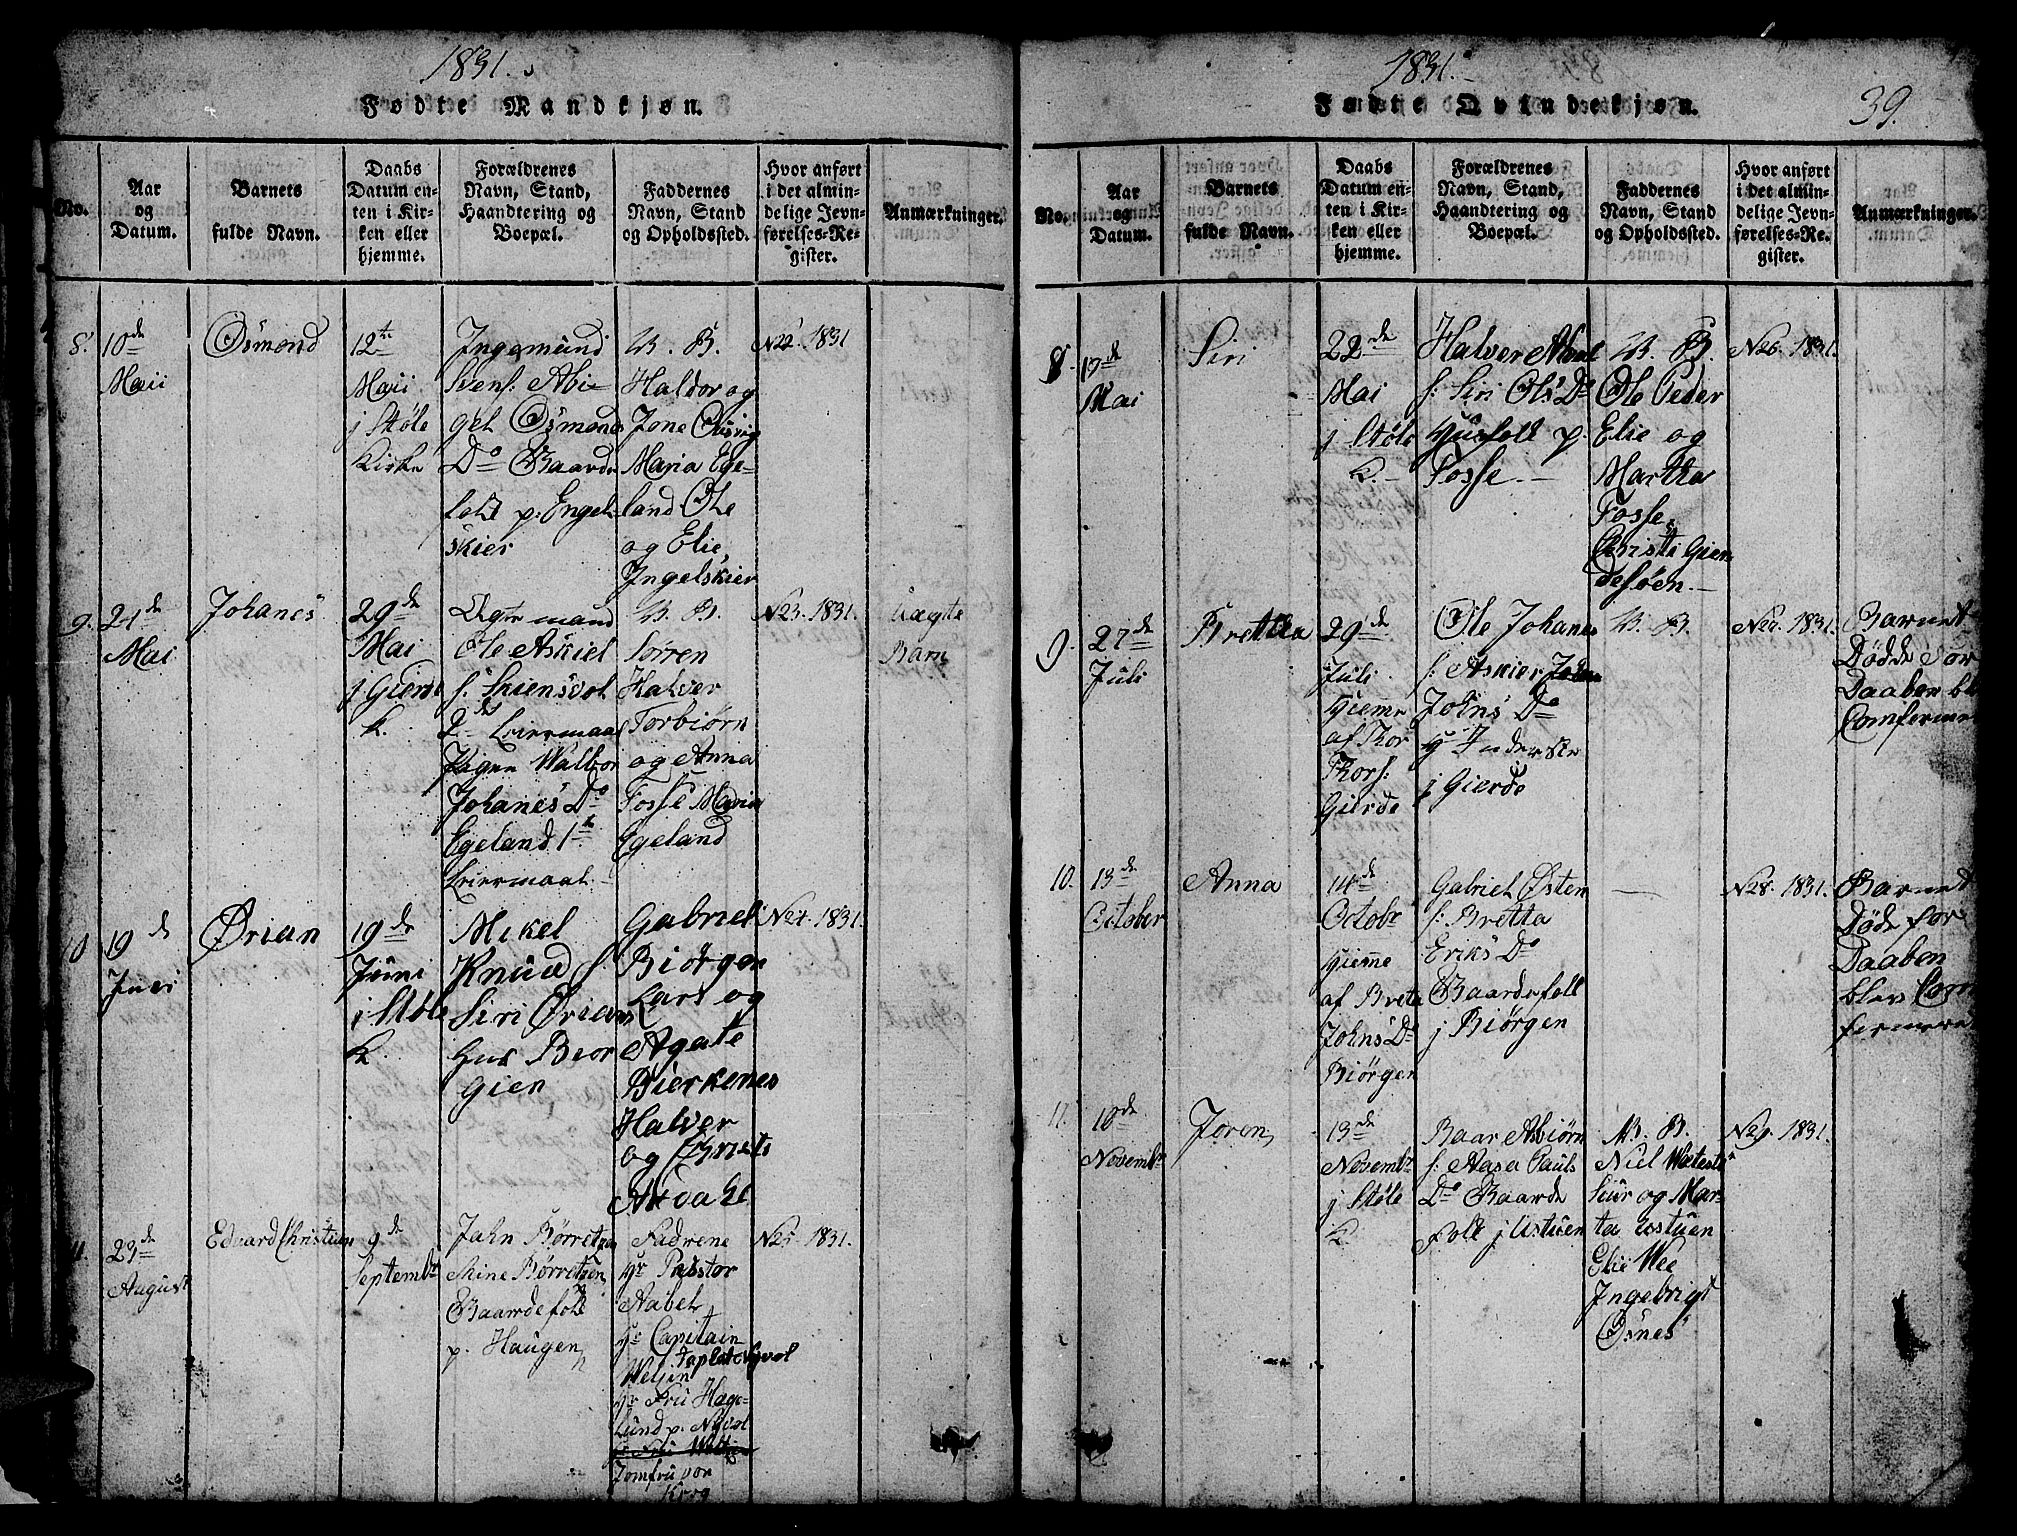 1831.
Fødte Mandkjøn.
No.
Aar
og
Datum.
Barnets
fulde Navn.
Daabs
Datum en-
ten i Kir-
ken eller
hjemme.
Forældrenes
Navn, Stand,
Haandtering og
Boepæl.
Faddernes
Navn, Stand
og Opholdssted.
Hvor anført
i det almin-
delige Jevn-
førelses-Re-
gister.
Anmærkninger.
8.
10de
Maii
Osmond
12te
Maii
j Støle
Kirke
Ingemund
Svens: Abi-
gel Osmonds
Do Baarde
folk p: Engel-
skier
W. B.
Haldor og
Jone
Maria Ege-
land Ole
og Elie,
Ingelskier
N22. 1831
9.
21de
Mai
Johanes
29de
Mai
j Gierde
K.
Ægtemand
Ole Askiel
s: Skiensvol
2de Leiermaal
Pigen Walbor
Johanes Do
Egeland 1te
Leiermaal
W. B.
Sørren
Halver
Torbiørn
og Anna
Fosse Maria
Egeland
N23. 1831.
Uægte
Barn
10
19de
Juni
Ørian
19de
Juni
j Støle
K.
Mikel
Knud s.
Siri Ørians
Hus Biør
gien
Gabriel
Biørgen
Lars og
Agate
Bierkenes
Halver
og
Axdahl
N24. 1831.
11.
23de
August
Eduard Christian
9de
Septembr
Jahn Børretzen
Stine Børretzen
Baardefolk
p. Haugen
Fadrene
Hr Pastor
Aabel
Hr Capitain
Weljen
Fru Hage-
lund p.
Jomfru von
Krog
N25. 1831.
1831.
Fødte Qvindekjøn.
39.
No.
Aar
og
Datum.
Barnets
fulde Navn.
Daabs
Datum en-
ten i Kir-
ken eller
hjemme.
Forældrenes
Navn, Stand,
Haandtering og
Boepæl.
Faddernes
Navn, Stand
og Opholdssted.
Hvor anført
i det almin-
delige Jevn-
førelses-Re-
gister.
Anmærkninger.
8.
13de
Mai
Siri
22de
Mai
j Støle
K.
Halver
s: Siri Ols Do
Husfolk p.
Fosse.
W. B.
Ole Peder
Elie og
Martha
Fosse
Christi Gien
desøen
N26. 1831.
9.
27de
Juli
Bretta
29de
Juli
Hieme
af Thor
Thors:
Gierde
Ole Johanes
s: Askier
Johns Do
Inderste
j Gierde
W. B.
N27. 1831.
Barnet
Døde før
Daaben blev
Comfermeret
10.
13de
October
Anna
14de
Octobr
Hieme
af Breta
Johns Do
Biørgen
Gabriel Østen
s: Bretta
Eriks Do
Baardefolk
j Biørgen
N28. 1831.
Barnet
Døde før
Daaben
blev Com
fermeret
11.
10de
Novembr
Joren
13de
Novembr
j Støle
K.
Baar Asbiørn
s: Aasa Pauls
Do Baarde
folk j Ustuen
W. B.
Niel
Siur og Mar-
ta Ustuen
Elie Wee
Ingebrigt
Osnes
N29. 1831.